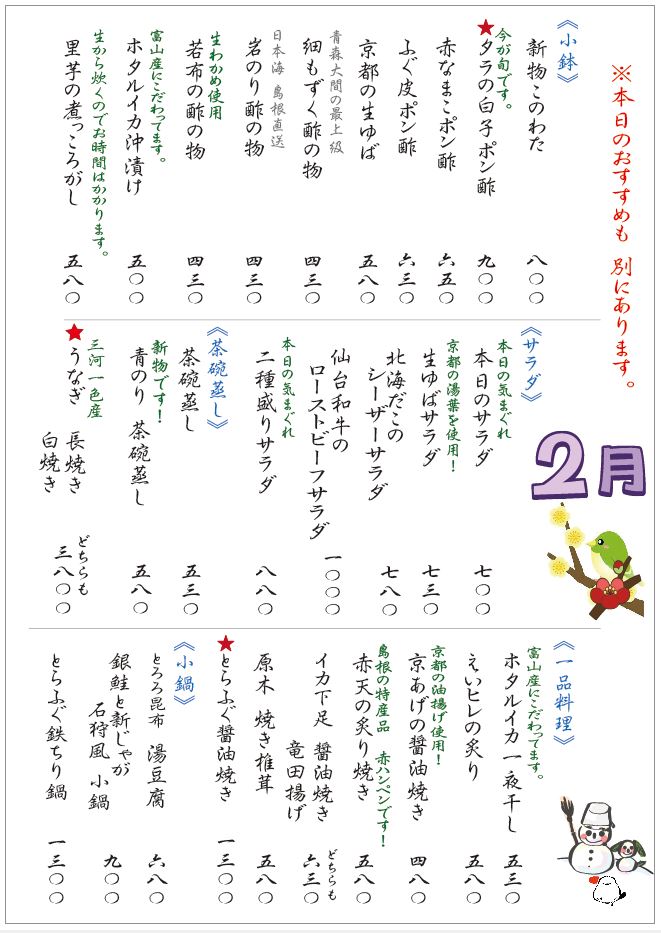 ※本日のおすすめも 別にあります。
2月
《小鉢》
新物このわた 八〇〇
今が旬です。
★タラの白子ポン酢 九〇〇
赤なまこポン酢 六五〇
ふぐ皮ポン酢 六三〇
京都の生ゆば 五八〇
青森大間の最上級
細もずく酢の物 四三〇
日本海 島根直送
岩のり酢の物 四三〇
生わかめ使用
若布の酢の物 四三〇
富山産にこだわってます。
ホタルイカ沖漬け 五〇〇
生から炊くのでお時間はかかります。
里芋の煮っころがし 五八〇
《サラダ》
本日の気まぐれ
本日のサラダ 七〇〇
京都の湯葉を使用!
生ゆばサラダ 七三〇
北海だこの
シーザーサラダ 七八〇
仙台和牛の
ローストビーフサラダ 一〇〇〇
本日の気まぐれ
二種盛りサラダ 八八〇
《茶碗蒸し》
茶碗蒸し 五三〇
新物です!
青のり 茶碗蒸し 五八〇
三河一色産
★うなぎ 長焼き
白焼き
どちらも
三八〇〇
《一品料理》
富山産にこだわってます。
ホタルイカ一夜干し 五三〇
えいヒレの炙り 五八〇
京都の油揚げ使用!
京あげの醤油焼き 四八〇
島根の特産品 赤ハンペンです!
赤天の炙り焼き 五八〇
イカ下足 醤油焼き
竜田揚げ
どちらも
六三〇
原木 焼き椎茸 五八〇
★とらふぐ醤油焼き 一三〇〇
《小鍋》
とろろ昆布 湯豆腐 六八〇
銀鮭と新じゃが
石狩風 小鍋 九〇〇
とらふぐ鉄ちり鍋 一三〇〇